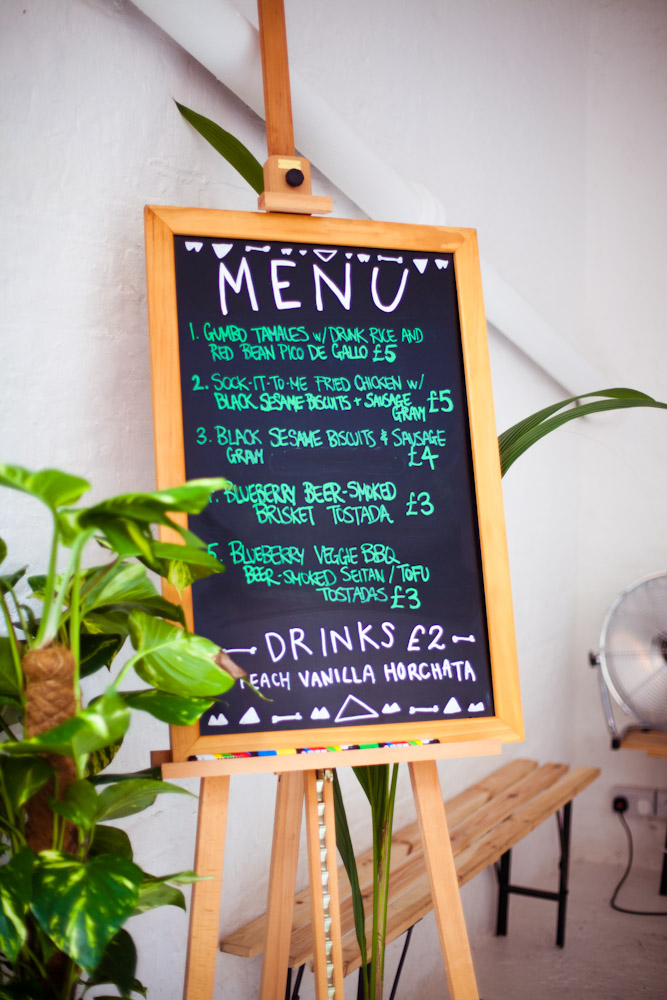 MENU
1. GUMBO TAMALES w/ DRUNK RICE AND
RED BEAN PICO DE GALLO £5
2. SOCK-IT-TO-ME FRIED CHICKEN w/
BLACK SESAME BISCUITS + SAUSAGE
GRAVY £5
3. BLACK SESAME BISCUITS & SAUSAGE
GRAVY £4
BLUEBERRY BEER-SMOKED
BRISKET TOSTADA £3
5. BLUEBERRY VEGGIE BBQ
BEER-SMOKED SEITAN / TOFU
TOSTADAS £3
DRINKS £2
PEACH VANILLA HORCHATA